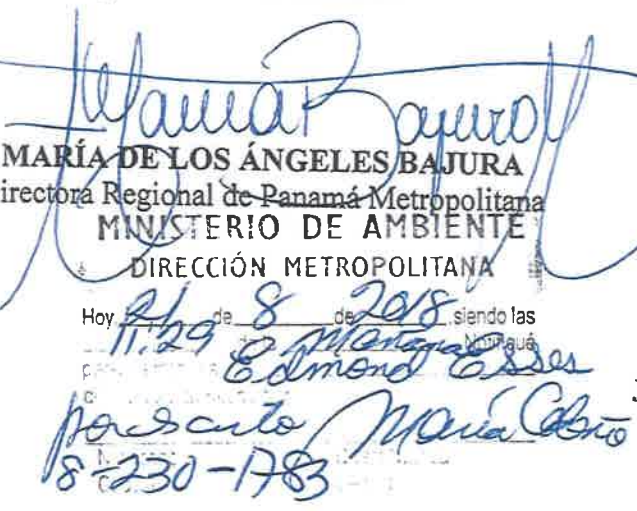 María Bajura
MARÍA DE LOS ÁNGELES BAJURA
irectora Regional de Panamá Metropolitana
MINISTERIO DE AMBIENTE
DIRECCIÓN METROPOLITANA
Hoy 21 de 8 de 2018 siendo las
11:29 de la Mañana Notifiqué
Edmond Esses
por escrito María
8-230-1783